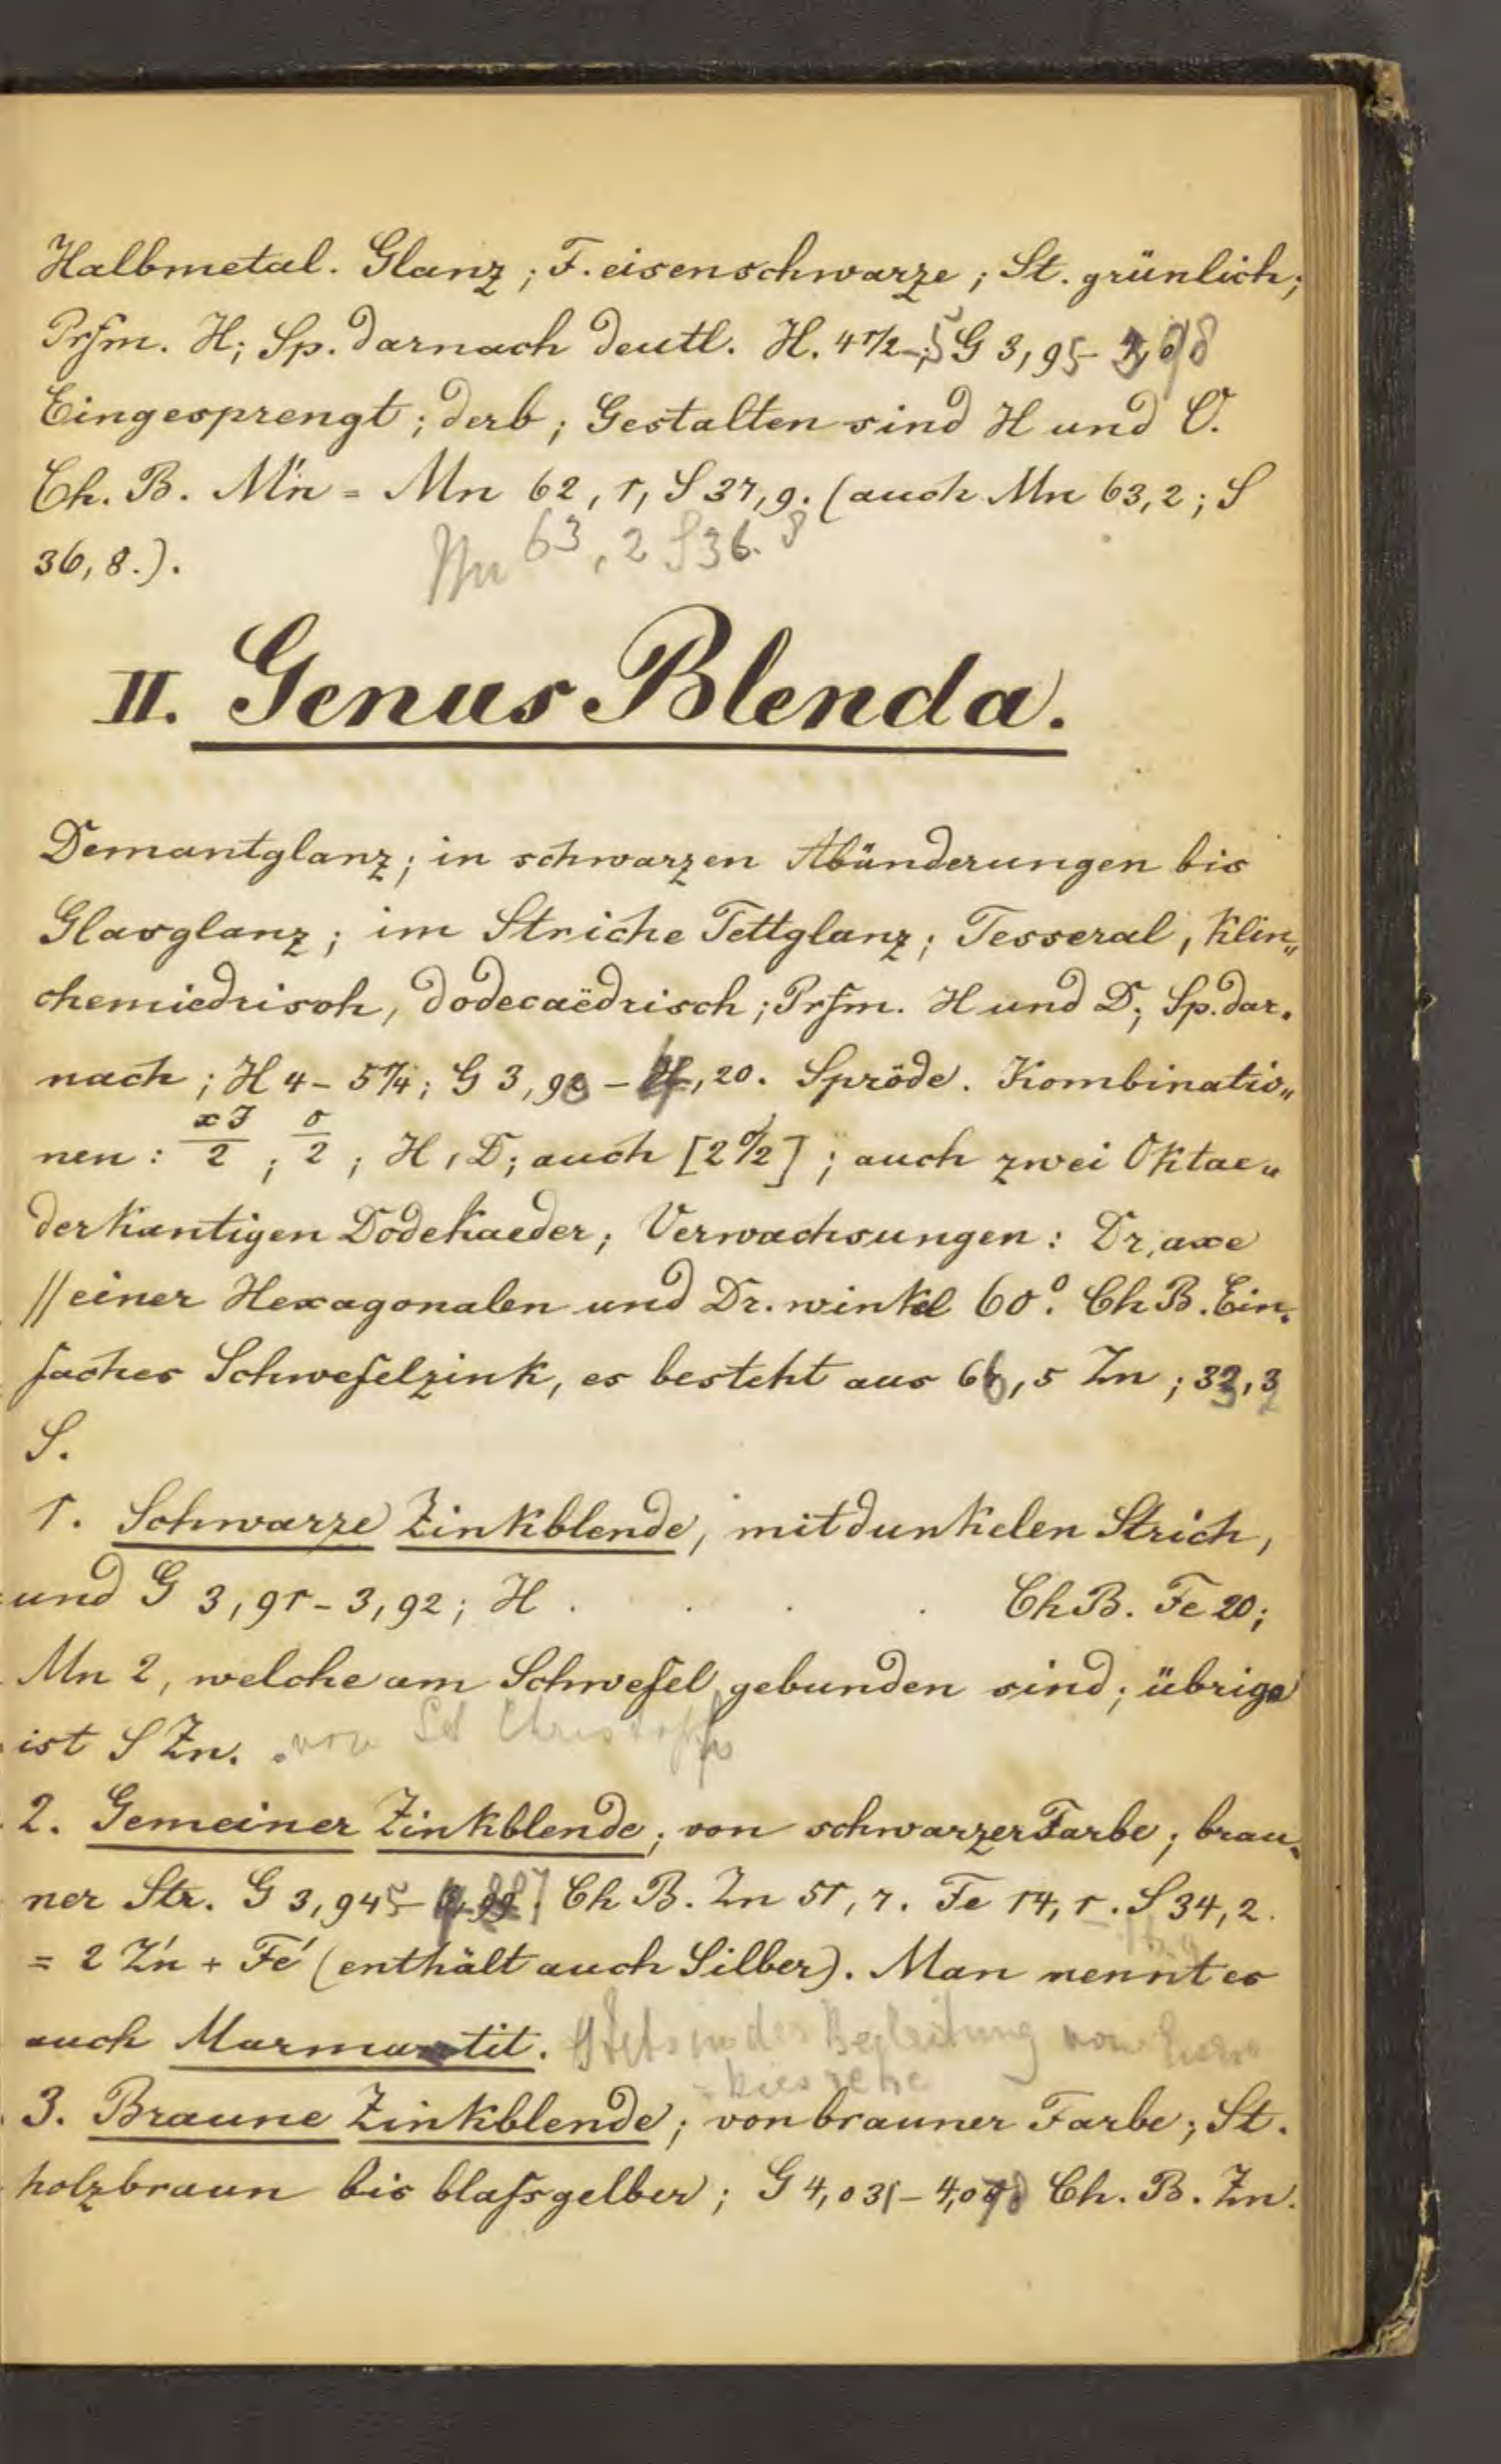 Halbmetal. Glanz; F. eisenschwarze; St. grünlich;
Prfm. H; Sp. darnach deutl. H. 4 1/2-5 G 3,95-3,98
Eingesprengt; derb; Gestalten sind H und O.
Ch. B. Mń = Mn 62,1, S 37,9. (auch Mn 63,2; S
36,8.).
Mn 63,2 S 36.8
II. Genus Blenda.
Demantglanz; in schwarzen Abänderungen bis
Glasglanz; im Striche Fettglanz; Tesseral, klin„
chemiedrisch, dodecaëdrisch; Prfm. H und D; Sp. dar.
nach; H 4-5 1/4; G 3,90-4,20. Spröde. Kombinatio„
nen: xJ/2; O/2; H, D; auch [2 O/2]; auch zwei Oktae„
derkantigen Dodekaeder; Verwachsungen: Dr, axe
// einer Hexagonalen und Dr. winkel 60°. Ch B. Ein.
faches Schwefelzink, es besteht aus 66,5 Zn; 33,3
S.
1. Schwarze Zinkblende, mit dunkelen Strich,
und G 3,91-3,92; H . . . . Ch B. Fe 20;
Mn 2, welche am Schwefel gebunden sind; übrige
ist S Zn. von Set Christoph
2. Gemeiner Zinkblende; von schwarzer Farbe; brau„
ner Str. G 3,945- Ch B. Zn 51,7. Fe 14,1. S 34,2.
= 2 Zń + Fé (enthält auch Silber). Man nennt es
auch Marmatit. Stets in der Begleitung von Eisen
=kiesrehe
3. Braune Zinkblende; von brauner Farbe; St.
holzbraun bis blaſsgelber; G 4,031-4,078 Ch. B. Zn.